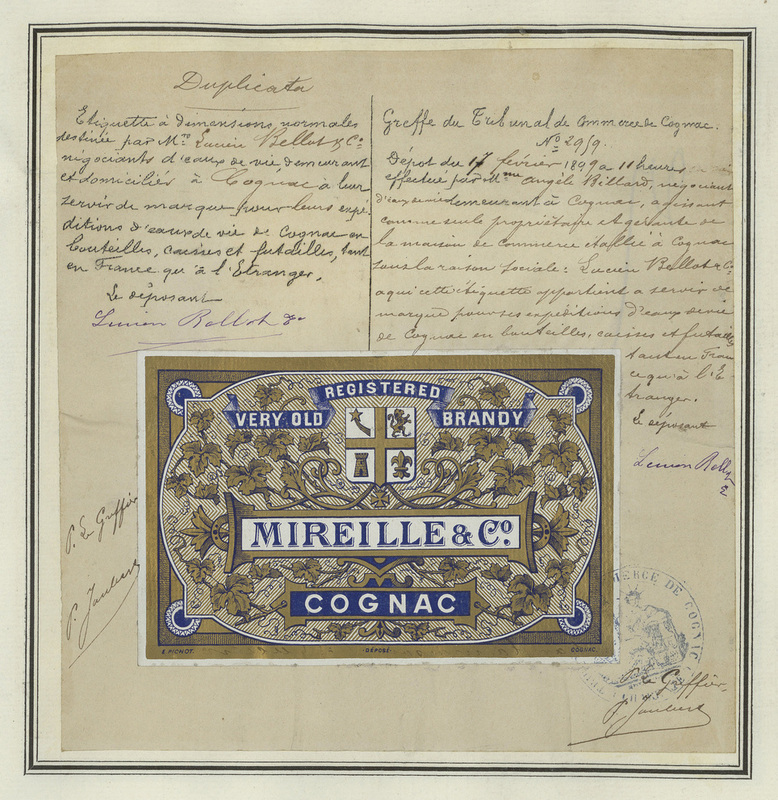 Duplicata
Etiquette à dimensions normales
destinée par Mrs Lucien Bellot & Co
négociants d'eaux de vie demeurant
et domiciliés à Cognac à leur
servir de marque pour leurs expé-
ditions d'eaux de vie de Cognac en
bouteilles, caisses et futailles, tant
en France qu'à l'Etranger.
Le déposant
Lucien Bellot & Co
Greffe du Tribunal de Commerce de Cognac.
No 2919.
Dépôt du 17 février 1899 à 11 heures
effectué par Mme Angèle Billard, négociant
d'eaux de vie demeurant à Cognac, agissant
comme seule propriétaire et gérante de
la maison de commerce établie à Cognac
sous la raison sociale: Lucien Bellot & Co
à qui cette étiquette appartient a servir de
marque pour ses expéditions d'eaux de vie
de Cognac en bouteilles, caisses et futailles
tant en Fran
ce qu'à l'E-
tranger.
Le déposant
Lucien Bellot
&
REGISTERED
VERY OLD BRANDY
MIREILLE & Co.
COGNAC
E. PICHOT. DÉPOSÉ COGNAC.
P. Le Greffier
P. Joubert
MERCE DE COGNAC
P. Le Greffier,
P. Joubert